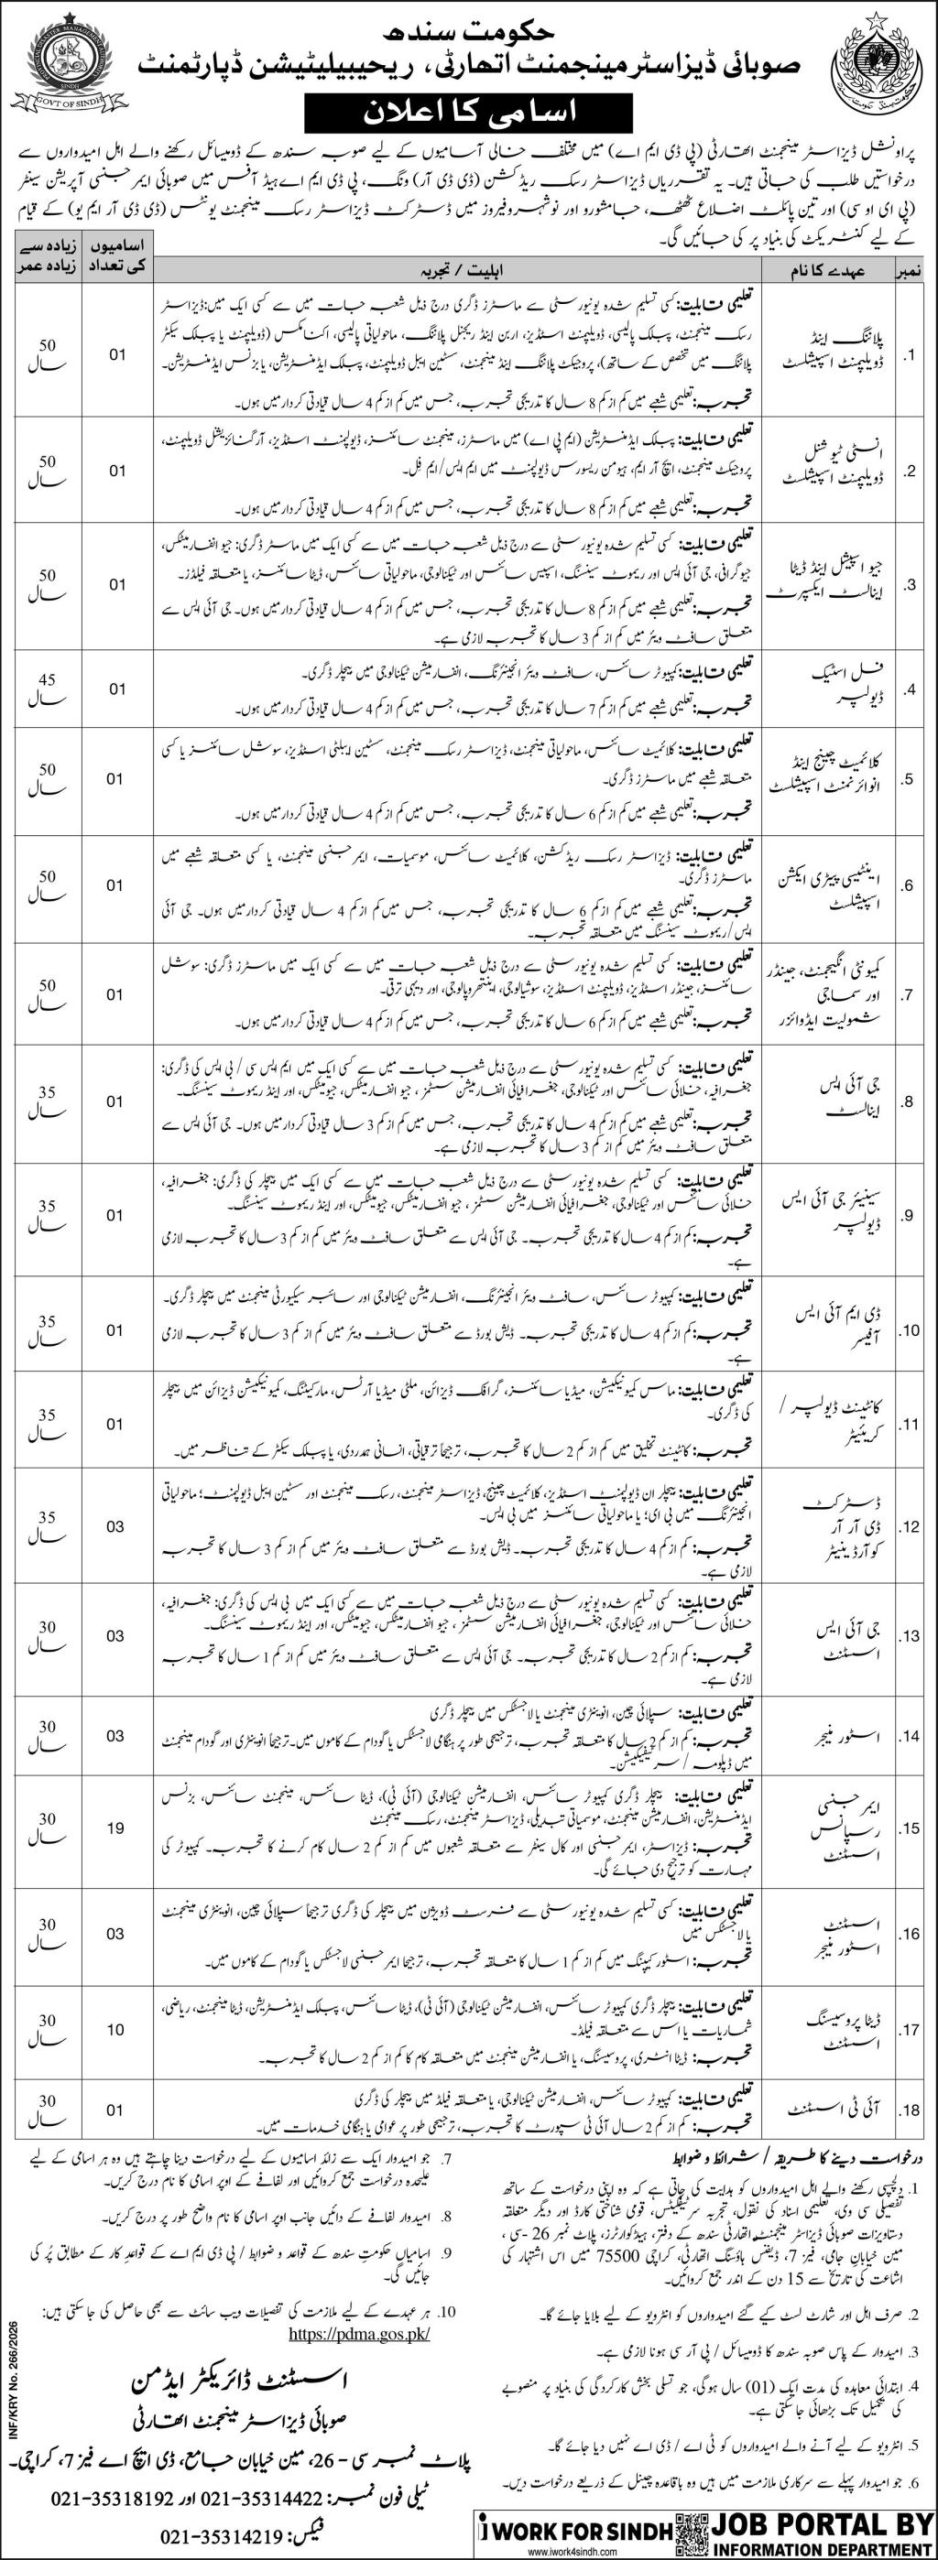 حکومت سندھ
صوبائی ڈیزاسٹر مینجمنٹ اتھارٹی، ریحیبیلیٹیشن ڈپارٹمنٹ
GOVT OF SINDH
اسامی کا اعلان
پراونشل ڈیزاسٹر مینجمنٹ اتھارٹی (پی ڈی ایم اے) میں مختلف خالی آسامیوں کے لیے صوبہ سندھ کے ڈومیسائل رکھنے والے اہل امیدواروں سے
درخواستیں طلب کی جاتی ہیں۔ یہ تقرریاں ڈیزاسٹر رسک ریڈکشن (ڈی ڈی آر) ونگ، پی ڈی ایم اے ہیڈ آفس میں صوبائی ایمرجنسی آپریشن سینٹر
(پی ای او سی) اور تین پائلٹ اضلاع ٹھٹھہ، جامشورو اور نوشہروفیروز میں ڈسٹرکٹ ڈیزاسٹر رسک مینجمنٹ یونٹس (ڈی ڈی آر ایم یو) کے قیام
کے لیے کنٹریکٹ کی بنیاد پر کی جائیں گی۔
نمبر عہدے کا نام اہلیت / تجربہ اسامیوں کی تعداد زیادہ سے زیادہ عمر
1. پلاننگ اینڈ ڈویلپمنٹ اسپیشلسٹ 01 50 سال
تعلیمی قابلیت: کسی تسلیم شدہ یونیورسٹی سے ماسٹرز ڈگری درج ذیل شعبہ جات میں سے کسی ایک میں: ڈیزاسٹر
رسک مینجمنٹ، پبلک پالیسی، ڈویلپمنٹ اسٹڈیز، اربن اینڈ ریجنل پلاننگ، ماحولیاتی پالیسی، اکنامکس (ڈویلپمنٹ یا پبلک سیکٹر
پلاننگ میں تخصص کے ساتھ)، پروجیکٹ پلاننگ اینڈ مینجمنٹ، سسٹین ایبل ڈویلپمنٹ، پبلک ایڈمنسٹریشن، یا بزنس ایڈمنسٹریشن۔
تجربہ: تعلیمی شعبے میں کم از کم 8 سال کا تدریجی تجربہ، جس میں کم از کم 4 سال قیادتی کردار میں ہوں۔
2. انسٹی ٹیوشنل ڈویلپمنٹ اسپیشلسٹ 01 50 سال
تعلیمی قابلیت: پبلک ایڈمنسٹریشن (ایم پی اے) میں ماسٹرز، مینجمنٹ سائنسز، ڈیولپمنٹ اسٹڈیز، آرگنائزیشنل ڈویلپمنٹ،
پروجیکٹ مینجمنٹ، ایچ آر ایم، ہیومن ریسورس ڈیولپمنٹ میں ایم ایس/ایم فل۔
تجربہ: تعلیمی شعبے میں کم از کم 8 سال کا تدریجی تجربہ، جس میں کم از کم 4 سال قیادتی کردار میں ہوں۔
3. جیو اسپیشل اینڈ ڈیٹا اینالسٹ ایکسپرٹ 01 50 سال
تعلیمی قابلیت: کسی تسلیم شدہ یونیورسٹی سے درج ذیل شعبہ جات میں سے کسی ایک میں ماسٹر ڈگری: جیو انفارمیٹکس،
جیوگرافی، جی آئی ایس اور ریموٹ سینسنگ، اسپیس سائنس اور ٹیکنالوجی، ماحولیاتی سائنس، ڈیٹا سائنسز، یا متعلقہ فیلڈز۔
تجربہ: تعلیمی شعبے میں کم از کم 8 سال کا تدریجی تجربہ، جس میں کم از کم 4 سال قیادتی کردار میں ہوں۔ جی آئی ایس سے
متعلق سافٹ ویئر میں کم از کم 3 سال کا تجربہ لازمی ہے۔
4. فل اسٹیک ڈیولپر 01 45 سال
تعلیمی قابلیت: کمپیوٹر سائنس، سافٹ ویئر انجینئرنگ، انفارمیشن ٹیکنالوجی میں بیچلر ڈگری۔
تجربہ: تعلیمی شعبے میں کم از کم 7 سال کا تدریجی تجربہ، جس میں کم از کم 4 سال قیادتی کردار میں ہوں۔
5. کلائمیٹ چینج اینڈ انوائرنمنٹ اسپیشلسٹ 01 50 سال
تعلیمی قابلیت: کلائمیٹ سائنس، ماحولیاتی مینجمنٹ، ڈیزاسٹر رسک مینجمنٹ، سسٹین ایبلٹی اسٹڈیز، سوشل سائنسز یا کسی
متعلقہ شعبے میں ماسٹرز ڈگری۔
تجربہ: تعلیمی شعبے میں کم از کم 6 سال کا تدریجی تجربہ، جس میں کم از کم 4 سال قیادتی کردار میں ہوں۔
6. اینٹیسی پیٹری ایکشن اسپیشلسٹ 01 50 سال
تعلیمی قابلیت: ڈیزاسٹر رسک ریڈکشن، کلائمیٹ سائنس، موسمیات، ایمرجنسی مینجمنٹ، یا کسی متعلقہ شعبے میں
ماسٹرز ڈگری۔
تجربہ: تعلیمی شعبے میں کم از کم 6 سال کا تدریجی تجربہ، جس میں کم از کم 4 سال قیادتی کردار میں ہوں۔ جی آئی
ایس/ریموٹ سینسنگ میں متعلقہ تجربہ۔
7. کمیونٹی انگیجمنٹ، جینڈر اور سماجی شمولیت ایڈوائزر 01 50 سال
تعلیمی قابلیت: کسی تسلیم شدہ یونیورسٹی سے درج ذیل شعبہ جات میں سے کسی ایک میں ماسٹرز ڈگری: سوشل
سائنسز، جینڈر اسٹڈیز، ڈویلپمنٹ اسٹڈیز، سوشیالوجی، اینتھروپالوجی، اور دیہی ترقی۔
تجربہ: تعلیمی شعبے میں کم از کم 6 سال کا تدریجی تجربہ، جس میں کم از کم 4 سال قیادتی کردار میں ہوں۔
8. جی آئی ایس اینالسٹ 01 35 سال
تعلیمی قابلیت: کسی تسلیم شدہ یونیورسٹی سے درج ذیل شعبہ جات میں سے کسی ایک میں ایم ایس سی / بی ایس کی ڈگری:
جغرافیہ، خلائی سائنس اور ٹیکنالوجی، جغرافیائی انفارمیشن سسٹمز، جیو انفارمیٹکس، جیومیٹکس، اور اینڈ ریموٹ سینسنگ۔
تجربہ: تعلیمی شعبے میں کم از کم 4 سال کا تدریجی تجربہ، جس میں کم از کم 3 سال قیادتی کردار میں ہوں۔ جی آئی ایس سے
متعلق سافٹ ویئر میں کم از کم 3 سال کا تجربہ لازمی ہے۔
9. سینیئر جی آئی ایس ڈیولپر 01 35 سال
تعلیمی قابلیت: کسی تسلیم شدہ یونیورسٹی سے درج ذیل شعبہ جات میں سے کسی ایک میں بیچلر کی ڈگری: جغرافیہ،
خلائی سائنس اور ٹیکنالوجی، جغرافیائی انفارمیشن سسٹمز، جیو انفارمیٹکس، جیومیٹکس، اور اینڈ ریموٹ سینسنگ۔
تجربہ: کم از کم 4 سال کا تدریجی تجربہ۔ جی آئی ایس سے متعلق سافٹ ویئر میں کم از کم 3 سال کا تجربہ لازمی
ہے۔
10. ڈی ایم آئی ایس آفیسر 01 35 سال
تعلیمی قابلیت: کمپیوٹر سائنس، سافٹ ویئر انجینئرنگ، انفارمیشن ٹیکنالوجی اور سائبر سیکیورٹی مینجمنٹ میں بیچلر ڈگری۔
تجربہ: کم از کم 4 سال کا تدریجی تجربہ۔ ڈیش بورڈ سے متعلق سافٹ ویئر میں کم از کم 3 سال کا تجربہ لازمی
ہے۔
11. کانٹینٹ ڈیولپر / کریئیٹر 01 35 سال
تعلیمی قابلیت: ماس کمیونیکیشن، میڈیا سائنسز، گرافک ڈیزائن، ملٹی میڈیا آرٹس، مارکیٹنگ، کمیونیکیشن ڈیزائن میں بیچلر
کی ڈگری۔
تجربہ: کانٹینٹ تخلیق میں کم از کم 2 سال کا تجربہ، ترجیحاً ترقیاتی، انسانی ہمدردی، یا پبلک سیکٹر کے تناظر میں۔
12. ڈسٹرکٹ ڈی آر آر کوآرڈینیٹر 03 35 سال
تعلیمی قابلیت: بیچلر ان ڈیولپمنٹ اسٹڈیز، کلائمیٹ چینج، ڈیزاسٹر مینجمنٹ، رسک مینجمنٹ اور سسٹین ایبل ڈیولپمنٹ؛ ماحولیاتی
انجینئرنگ میں بی ای؛ یا ماحولیاتی سائنسز میں بی ایس۔
تجربہ: کم از کم 4 سال کا تدریجی تجربہ۔ ڈیش بورڈ سے متعلق سافٹ ویئر میں کم از کم 3 سال کا تجربہ
لازمی ہے۔
13. جی آئی ایس اسسٹنٹ 03 30 سال
تعلیمی قابلیت: کسی تسلیم شدہ یونیورسٹی سے درج ذیل شعبہ جات میں سے کسی ایک میں بی ایس کی ڈگری: جغرافیہ،
خلائی سائنس اور ٹیکنالوجی، جغرافیائی انفارمیشن سسٹمز، جیو انفارمیٹکس، جیومیٹکس، اور اینڈ ریموٹ سینسنگ۔
تجربہ: کم از کم 2 سال کا تدریجی تجربہ۔ جی آئی ایس سے متعلق سافٹ ویئر میں کم از کم 1 سال کا تجربہ
لازمی ہے۔
14. اسٹور منیجر 03 30 سال
تعلیمی قابلیت: سپلائی چین، انوینٹری مینجمنٹ یا لاجسٹکس میں بیچلر ڈگری
تجربہ: کم از کم 2 سال کا متعلقہ تجربہ، ترجیحی طور پر ہنگامی لاجسٹکس یا گودام کے کاموں میں۔ ترجیحاً انوینٹری اور گودام مینجمنٹ
میں ڈپلومہ / سرٹیفکیشن۔
15. ایمرجنسی رسپانس اسسٹنٹ 19 30 سال
تعلیمی قابلیت: بیچلر ڈگری کمپیوٹر سائنس، انفارمیشن ٹیکنالوجی (آئی ٹی)، ڈیٹا سائنس، مینجمنٹ سائنس، بزنس
ایڈمنسٹریشن، انفارمیشن مینجمنٹ، موسمیاتی تبدیلی، ڈیزاسٹر مینجمنٹ، رسک مینجمنٹ
تجربہ: ڈیزاسٹر، ایمرجنسی اور کال سینٹر سے متعلقہ شعبوں میں کم از کم 2 سال کام کرنے کا تجربہ۔ کمپیوٹر کی
مہارت کو ترجیح دی جائے گی۔
16. اسسٹنٹ اسٹور منیجر 03 30 سال
تعلیمی قابلیت: کسی تسلیم شدہ یونیورسٹی سے فرسٹ ڈویژن میں بیچلر کی ڈگری ترجیحاً سپلائی چین، انوینٹری مینجمنٹ
یا لاجسٹکس میں
تجربہ: اسٹور کیپنگ میں کم از کم 1 سال کا متعلقہ تجربہ، ترجیحاً ایمرجنسی لاجسٹکس یا گودام کے کاموں میں۔
17. ڈیٹا پروسیسنگ اسسٹنٹ 10 30 سال
تعلیمی قابلیت: بیچلر ڈگری کمپیوٹر سائنس، انفارمیشن ٹیکنالوجی (آئی ٹی)، ڈیٹا سائنس، پبلک ایڈمنسٹریشن، ڈیٹا مینجمنٹ، ریاضی،
شماریات یا اس سے متعلقہ فیلڈ۔
تجربہ: ڈیٹا انٹری، پروسیسنگ، یا انفارمیشن مینجمنٹ میں متعلقہ کام کا کم از کم 2 سال کا تجربہ۔
18. آئی ٹی اسسٹنٹ 01 30 سال
تعلیمی قابلیت: کمپیوٹر سائنس، انفارمیشن ٹیکنالوجی، یا متعلقہ فیلڈ میں بیچلر کی ڈگری
تجربہ: کم از کم 2 سال آئی ٹی سپورٹ کا تجربہ، ترجیحی طور پر عوامی یا ہنگامی خدمات میں۔
درخواست دینے کا طریقہ / شرائط و ضوابط
1. دلچسپی رکھنے والے اہل امیدواروں کو ہدایت کی جاتی ہے کہ وہ اپنی درخواست کے ساتھ
تفصیلی سی وی، تعلیمی اسناد کی نقول، تجربہ سرٹیفکیٹس، قومی شناختی کارڈ اور دیگر متعلقہ
دستاویزات صوبائی ڈیزاسٹر مینجمنٹ اتھارٹی سندھ کے دفتر، ہیڈکوارٹرز، پلاٹ نمبر 26-سی،
مین خیابان جامی، فیز 7، ڈیفنس ہاؤسنگ اتھارٹی، کراچی 75500 میں اس اشتہار کی
اشاعت کی تاریخ سے 15 دن کے اندر جمع کروائیں۔
2. صرف اہل اور شارٹ لسٹ کیے گئے امیدواروں کو انٹرویو کے لیے بلایا جائے گا۔
3. امیدوار کے پاس صوبہ سندھ کا ڈومیسائل / پی آر سی ہونا لازمی ہے۔
4. ابتدائی معاہدہ کی مدت ایک (01) سال ہوگی، جو تسلی بخش کارکردگی کی بنیاد پر منصوبے
کی تکمیل تک بڑھائی جا سکتی ہے۔
5. انٹرویو کے لیے آنے والے امیدواروں کو ٹی اے / ڈی اے نہیں دیا جائے گا۔
6. جو امیدوار پہلے سے سرکاری ملازمت میں ہیں وہ باقاعدہ چینل کے ذریعے درخواست دیں۔
7. جو امیدوار ایک سے زائد اسامیوں کے لیے درخواست دینا چاہتے ہیں وہ ہر اسامی کے لیے
علیحدہ درخواست جمع کروائیں اور لفافے کے اوپر اسامی کا نام درج کریں۔
8. امیدوار لفافے کے دائیں جانب اوپر اسامی کا نام واضح طور پر درج کریں۔
9. اسامیاں حکومت سندھ کے قواعد و ضوابط / پی ڈی ایم اے کے قواعد کار کے مطابق پُر کی
جائیں گی۔
10. ہر عہدے کے لیے ملازمت کی تفصیلات ویب سائٹ سے بھی حاصل کی جا سکتی ہیں:
https://pdma.gos.pk/
اسسٹنٹ ڈائریکٹر ایڈمن
صوبائی ڈیزاسٹر مینجمنٹ اتھارٹی
پلاٹ نمبر سی - 26، مین خیابان جامع، ڈی ایچ اے فیز 7، کراچی۔
ٹیلی فون نمبر: 35314422-021 اور 35318192-021
فیکس: 35314219-021
INF/KRY No. 266/2026
i WORK FOR SINDH
www.iwork4sindh.com
JOB PORTAL BY
INFORMATION DEPARTMENT